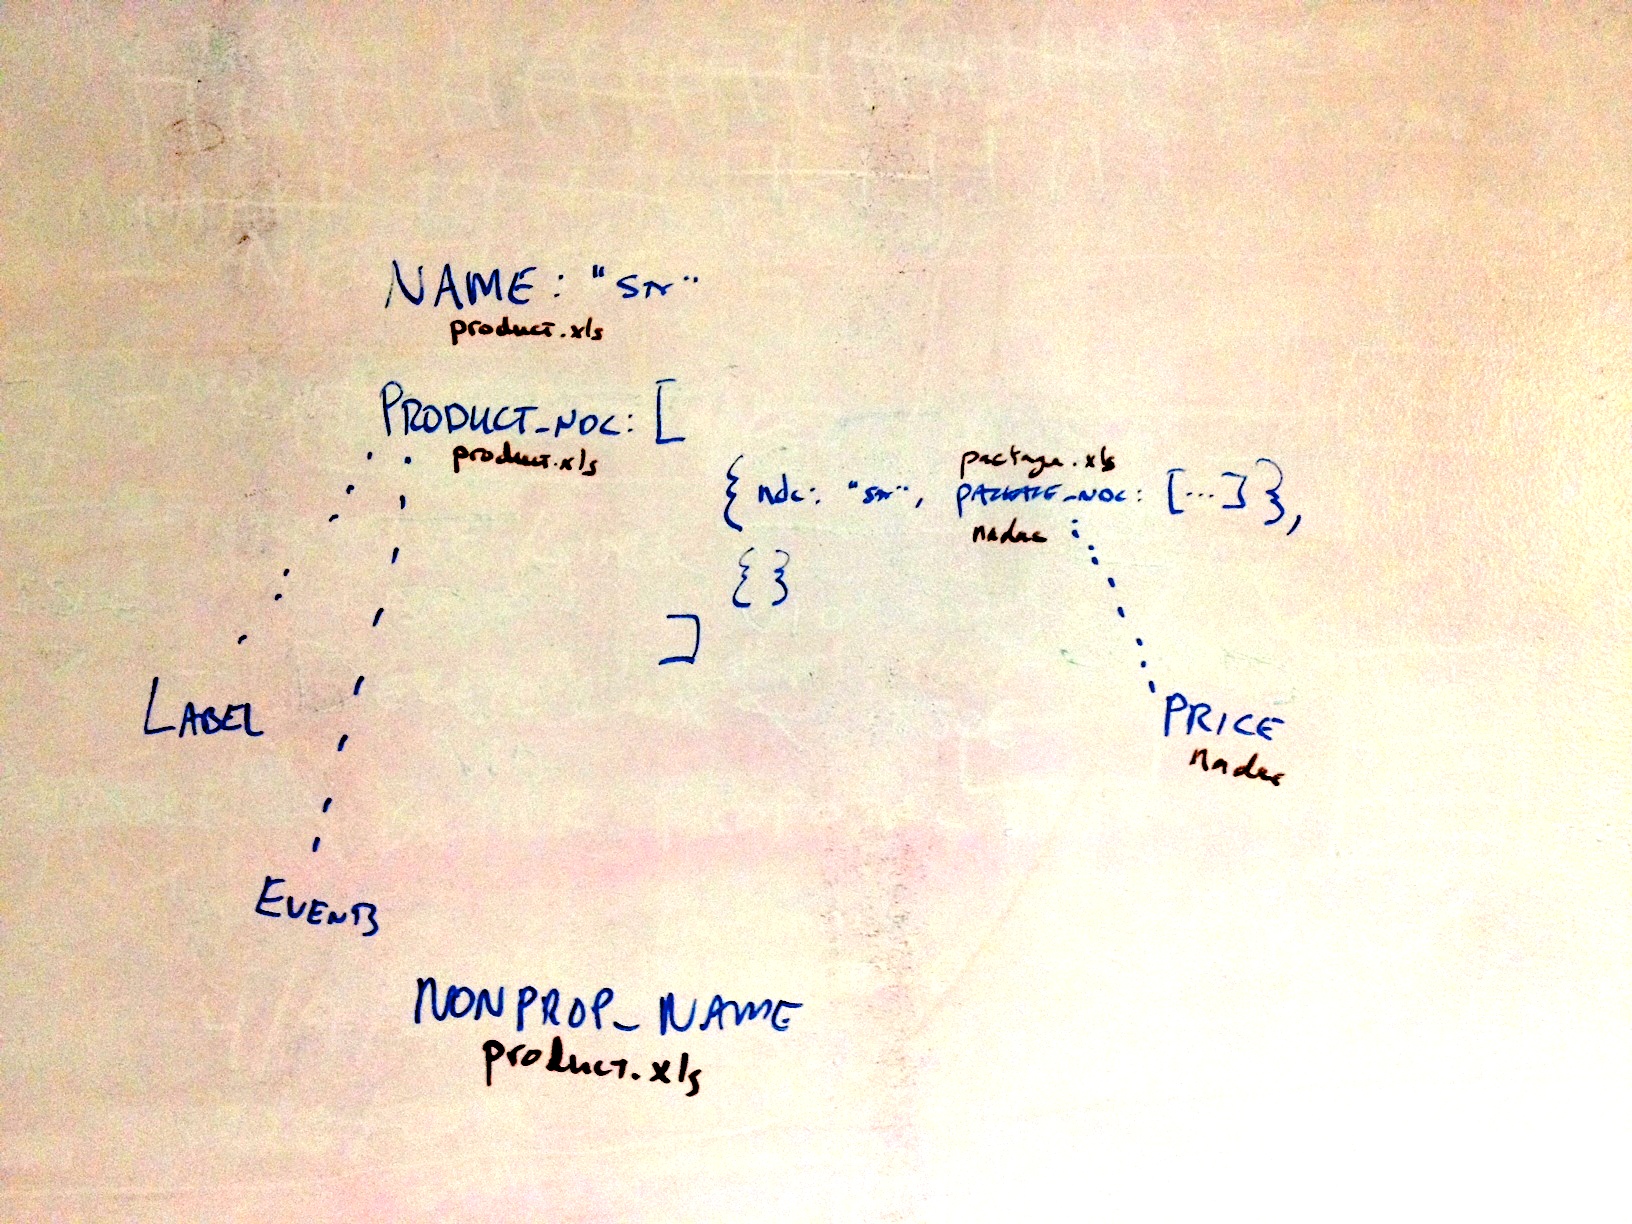 NAME: "str"
product.xls
PRODUCT_NDC: [
product.xls
package.xls
{ ndc: "str", PACKAGE_NDC: [...] },
nadac
{ }
]
LABEL
PRICE
nadac
EVENTS
NONPROP_NAME
product.xls